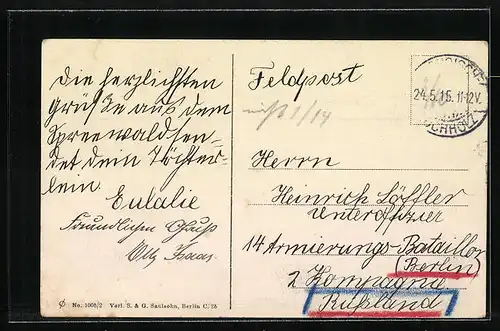 Die herzlichsten
grüße aus dem
Spreewald sen-
det dein Töchter-
lein.
Eulalie
Freundlichen Gruß
Feldpost
24.5.16. 11-12V.
BUCHHOLZ
nicht 1/14
Herrn
Heinrich Löffler
Unteroffizier
14 Armierungs-Bataillon
(Berlin)
2 Kompagnie
Rußland
No. 1006/2 Verl. S. & G. Saulsohn, Berlin C. 25